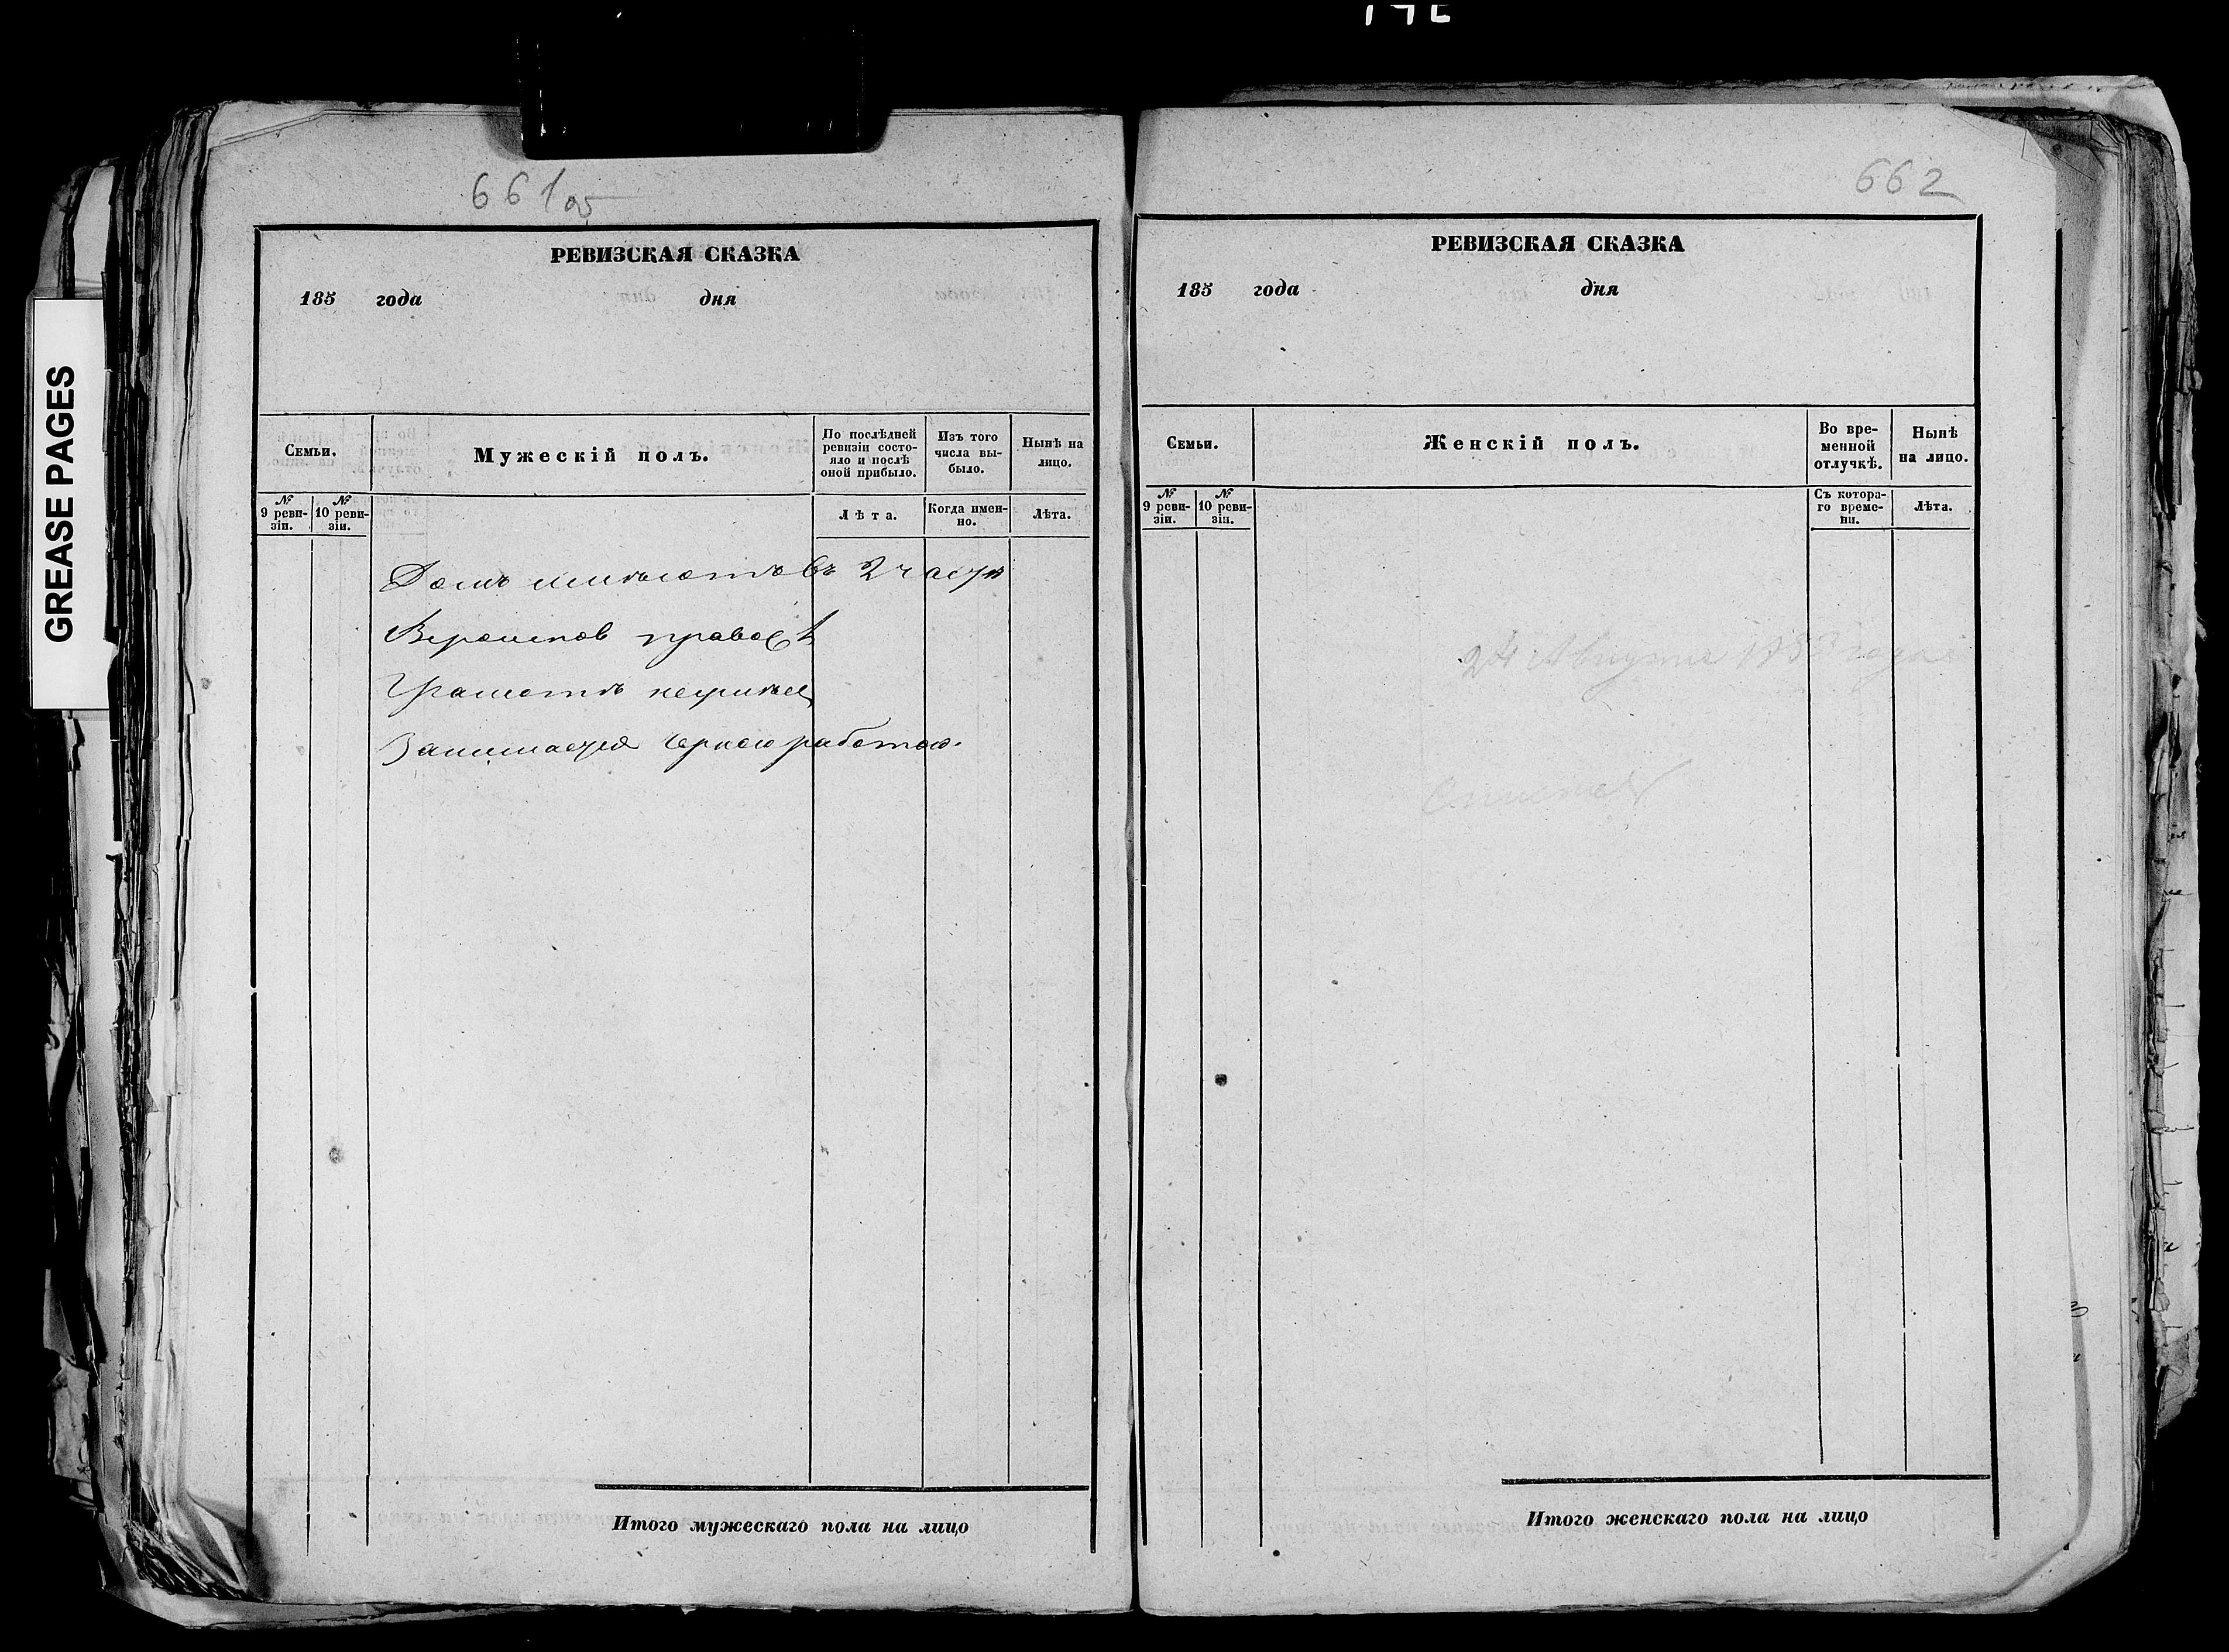 GREASE PAGES
661об
РЕВИЗСКАЯ СКАЗКА
185 года дня
Семьи.
Мужескій полъ.
По послѣдней ревизіи состояло и послѣ оной прибыло.
Изъ того числа выбыло.
Нынѣ на лицо.
№ 9 ревизіи.
№ 10 ревизіи.
Лѣта.
Когда именно.
Лѣта.
Домъ имѣетъ въ 2 части
правос
Грамотѣ неумѣе
Занимается черною работою.
Итого мужескаго пола на лицо
662
РЕВИЗСКАЯ СКАЗКА
185 года дня
Семьи.
Женскій полъ.
Во временной отлучкѣ.
Нынѣ на лицо.
№ 9 ревизіи.
№ 10 ревизіи.
Съ котораго времени.
Лѣта.
24 Августа 185 года
Итого женскаго пола на лицо